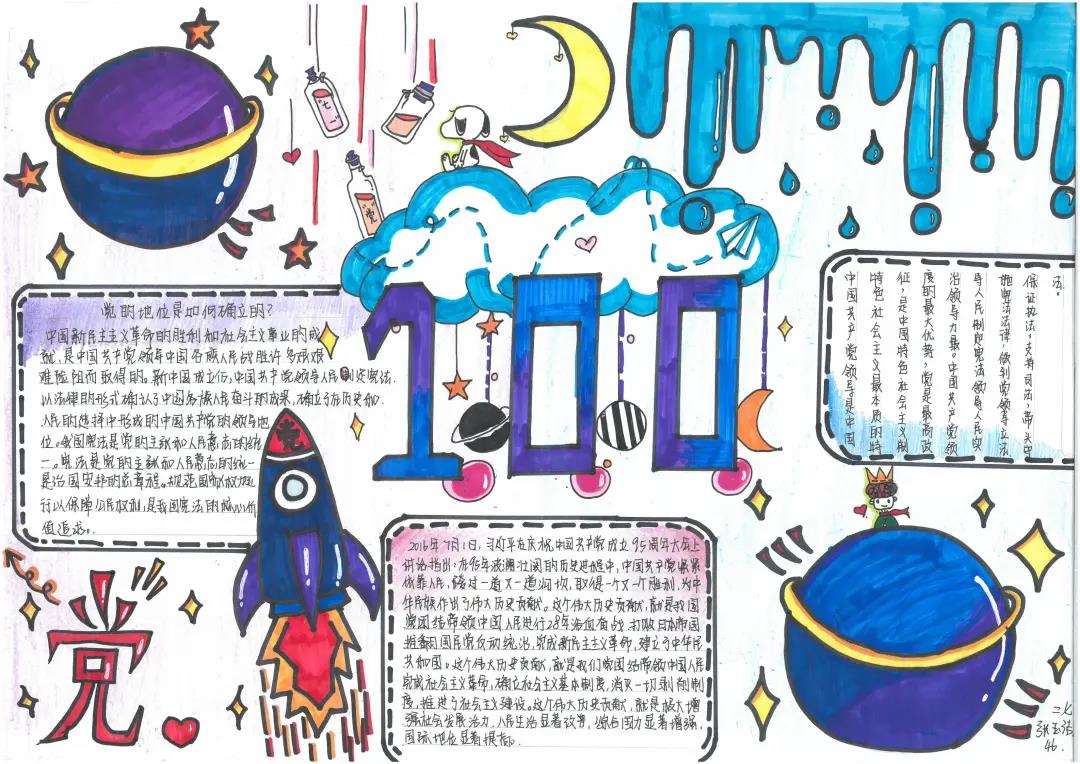 七
党
100
党的地位是如何确立的?
中国新民主主义革命的胜利和社会主义事业的成
就,是中国共产党领导中国各族人民战胜许多艰难
难险阻而取得的。新中国成立后,中国共产党领导人民制定宪法.
以法律的形式确认了中国各族人民奋斗的成果,确立了在历史和.
人民的选择中形成的中国共产党的领导地
位。我国宪法是党的主张和人民意志的统
一。宪法是党的主张和人民意志的统一
是治国安邦的总章程。规范国家权力运
行以保障公民权利,是我国宪法的核心价
值追求。
中国共产党领导是中国
特色社会主义最本质的特
征,是中国特色社会主义制
度的最大优势,党是最高政
治领导力量。中国共产党领
导人民制定宪法领导人民实
施宪法法律,做到党领导立法
保证执法,支持司法,带头守
法。
党
2016年7月1日,习近平在庆祝中国共产党成立95周年大会上
讲话指出:在95年波澜壮阔的历史进程中,中国共产党紧紧
依靠人民,跨过一道又一道沟坎,取得一个又一个胜利,为中
华民族作出了伟大历史贡献。这个伟大历史贡献,就是我国
党团结带领中国人民进行28年浴血奋战,打败日本帝国
推翻国民党反动统治,完成新民主主义革命,建立了中华人民
共和国。这个伟大历史贡献,就是我们党团结带领中国人民
完成社会主义革命,确立社会主义基本制度,消灭一切剥削制
度,推进了社会主义建设。这个伟大历史贡献,就是极大增
强社会发展活力,人民生活显著改善,综合国力显著增强,
国际地位显著提高。
党
二七
46.